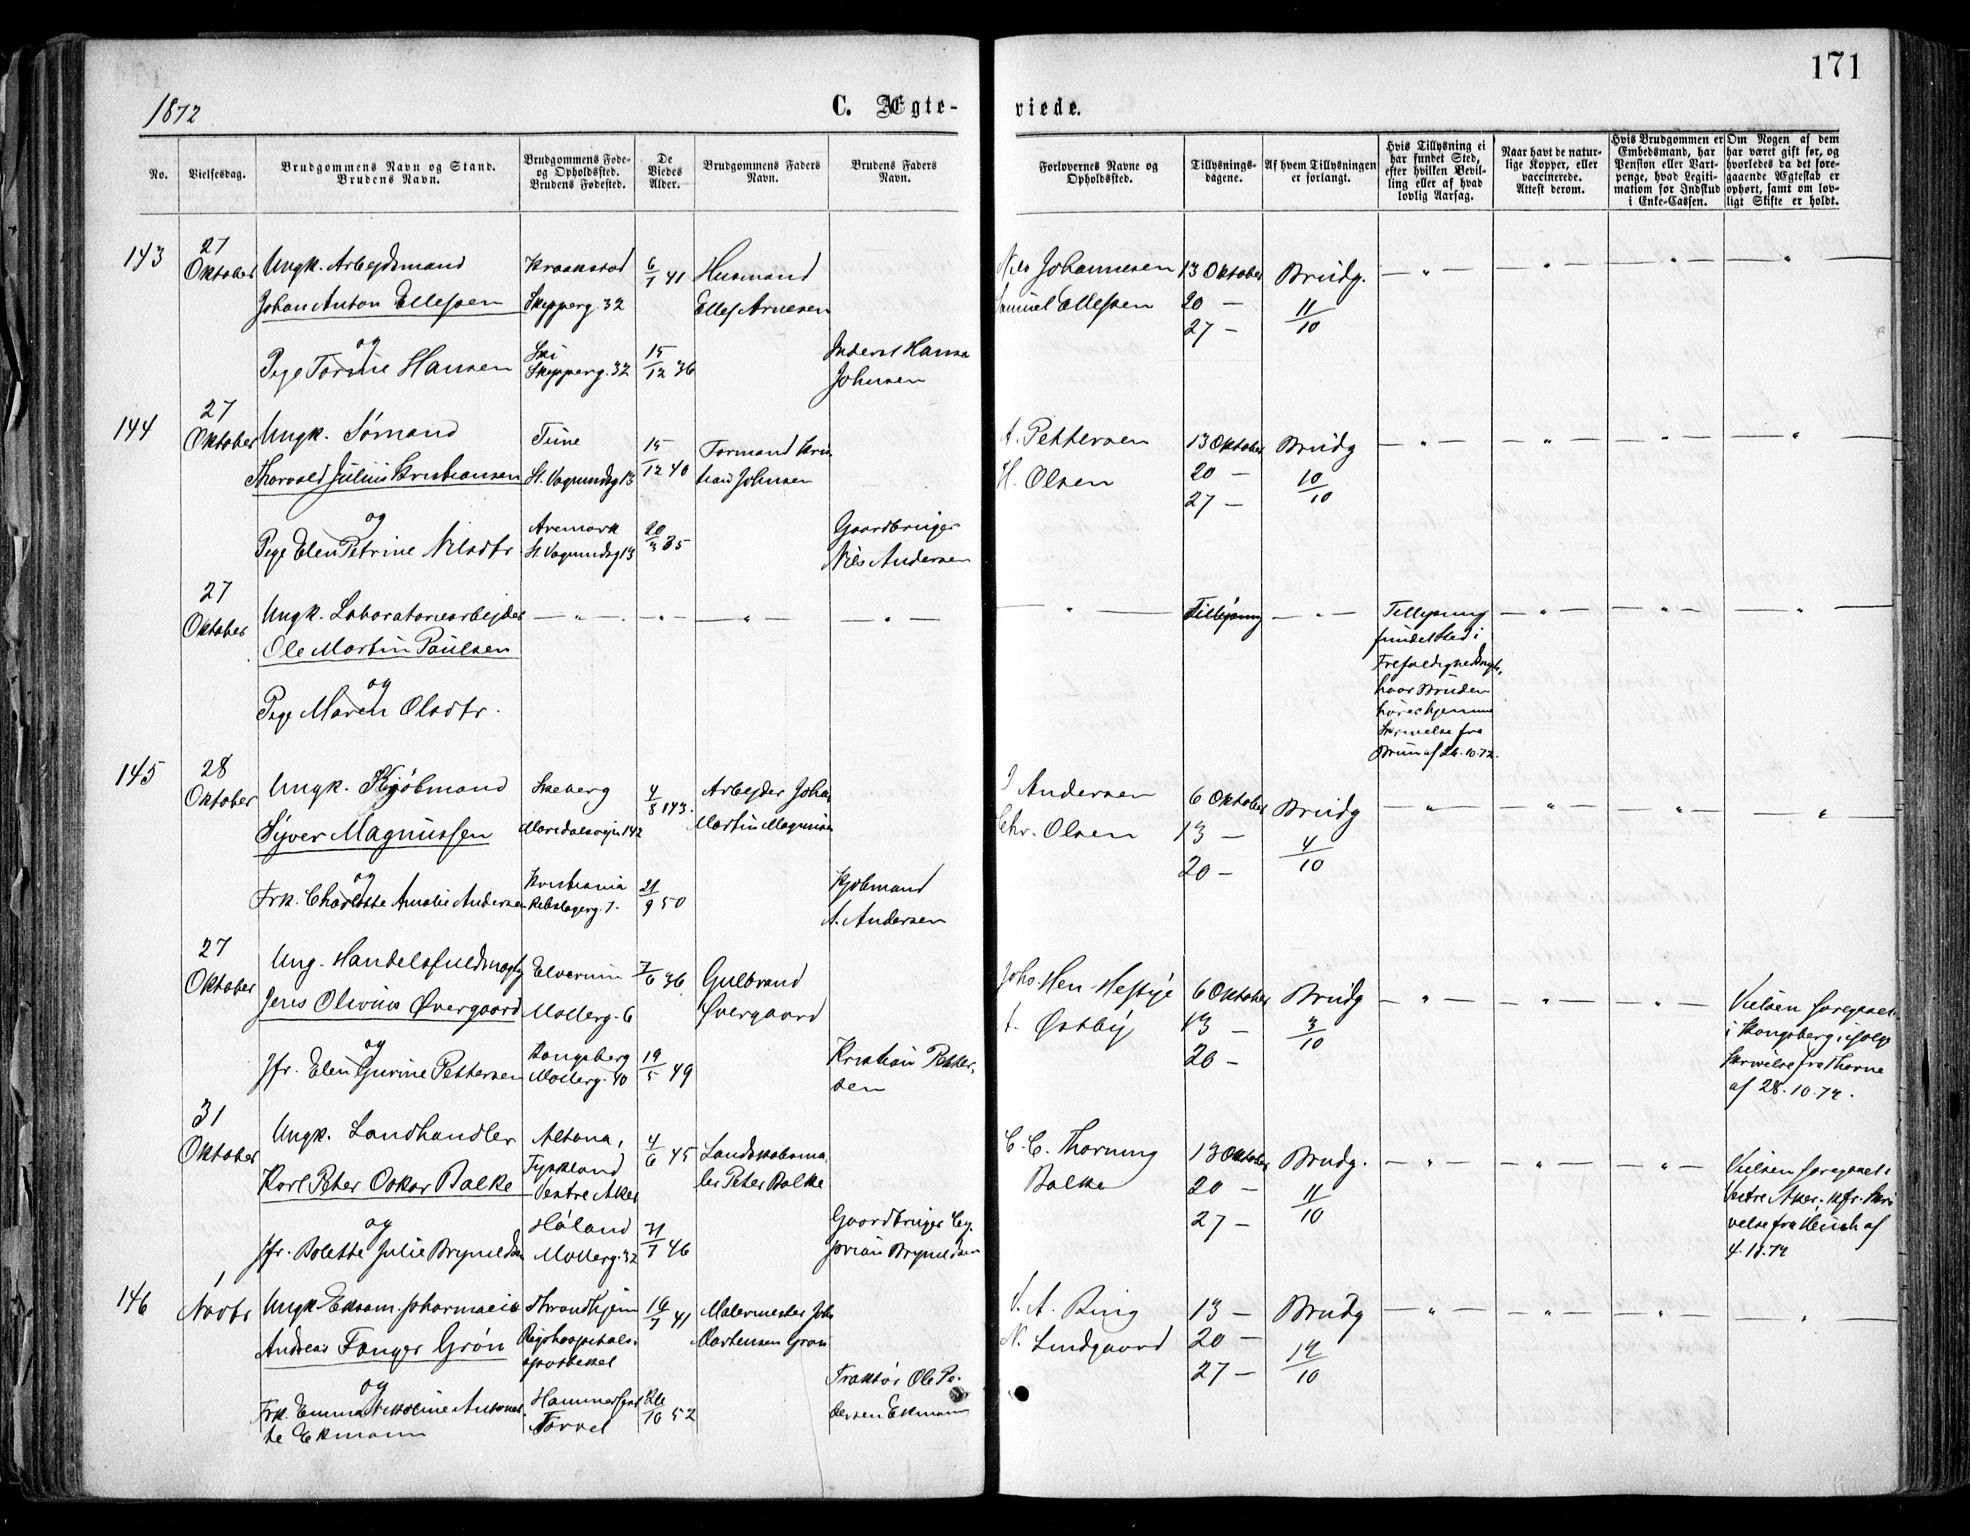 171
1872
C. Ægte-
viede.
No.
Vielsesdag.
Brudgommens Navn og Stand.
Brudens Navn.
Brudgommens Føde-
og Opholdssted.
Brudens Fødested.
De
Viedes
Alder.
Brudgommens Faders
Navn.
Brudens Faders
Navn.
Forlovernes Navne og
Opholdssted.
Tillysnings-
dagene.
Af hvem Tillysningen
er forlangt.
Hvis Tillysning ei
har fundet Sted,
efter hvilken Bevil-
ling eller af hvad
lovlig Aarsag.
Naar havt de natur-
lige Kopper, eller
vaccinerede.
Attest derom.
Hvis Brudgommen er
Embedsmand, har
Pension eller Vart-
penge, hvad Legiti-
mation for Indskud
i Enke-Cassen.
Om Nogen af dem
har været gift før, og
hvorledes da det fore-
gaaende Ægteskab er
ophørt, samt om lov-
ligt Skifte er holdt.
143
27
Oktober
Ungk. Arbejdsmand
Johan Anton Ellefsen
og
Pige Torine Hansen
Kraakstad
Skipperg. 32
Ski
Skipperg. 32
6/1 41
15/12 36
Husmand
Ellef Arnesen
Inderst Hans
Johnsen
Nils Johannesen
Samuel Ellefsen
13 Oktober
20 —
27 —
Brudg.
11/10
— " —
144
27
Oktober
Ungk. Sømand
Thorvald Julius Kristiansen
og
Pige Elen Petrine Nilsdtr
Tune
St. Vognmdsg 13
Aremark
St. Vognmdsg 13
15/12 40
20/3 35
Formand Kris
tian Johnsen
Gaardbruger
Nils Andersen
A. Pettersen
H. Olsen
13 Oktober
20 —
27 —
Brudg
10/10
— " —
27
Oktober
Ungk. Laboratoriearbejder
Ole Martin Paulsen
og
Pige Maren Olsdtr.
— " —
Tillysning
— " —
Tillysning
fundet Sted i
Trefoldighed
hvor Bruden
hører hjemme
Skrivelse fra
Bruun af 26.10.72.
145
28
Oktober
Ungk. Kjøbmand
Syver Magnussen
og
Frk. Charlotte Amalie Andersen
Skeberg
Maridalsvejn 142
Kristiania
Rebslagerg. 7.
4/8 43.
21/9 50
Arbejder Johan
Martin Magnusen
Kjøbmand
A. Andersen
J Andersen
Chr. Olsen
6 Oktober
13 —
20 —
Brudg
4/10
— " —
27
Oktober
Ung. Handelsfuldmægtig
Jens Olivius Øvergaard
og
Jfr. Elen Gurine Pettersen
Elverum
Møllerg. 6
Kongsberg
Møllerg. 40
7/6 36
19/5 49
Gulbrand
Øvergaard
Kristian Petter-
sen
Johs. Hen Hestjie
A. Østby
6 Oktober
13 —
20 —
Brudg
3/10
— " —
Vielsen foregaaet
i Kongsberg ifølge
Skrivelse fra Thorne
af 28.10.72.
31
Oktober
Ungk. Landhandler
Karl Peter Oskar Balke
og
Jfr. Bolette Julie Brynildsen
Altona,
Tyskland
Vestre Aker
Høland
Møllerg. 32
4/6 45
31/7 46
Landskabsma-
ler Peter Balke
Gaardbruger
Brynildsen
C. C. Thorning
Balke
13 Oktober
20 —
27 —
Brudg.
11/10
— " —
Vielsen foregaaet i
Vestre Aker. kfr. Skri
velse fra Heuch af
4.11.72
146
1
Novbr
Ungk. Eksam. Pharmaceut
Andreas Fanger Grøn
og
Frk. Emma Nikoline Antonet-
te Ekmann
Throndhjem
Rigshospitals-
apotheket
Hammerfest
Torvet
16/7 41
26/10 52
Malermester Joh
Martensen Grøn
Traktør Ole Pe-
dersen Ekmann
S. A. Ring
N. Lindgaard
13 —
20 —
27 —
Brudg
12/10
— " —